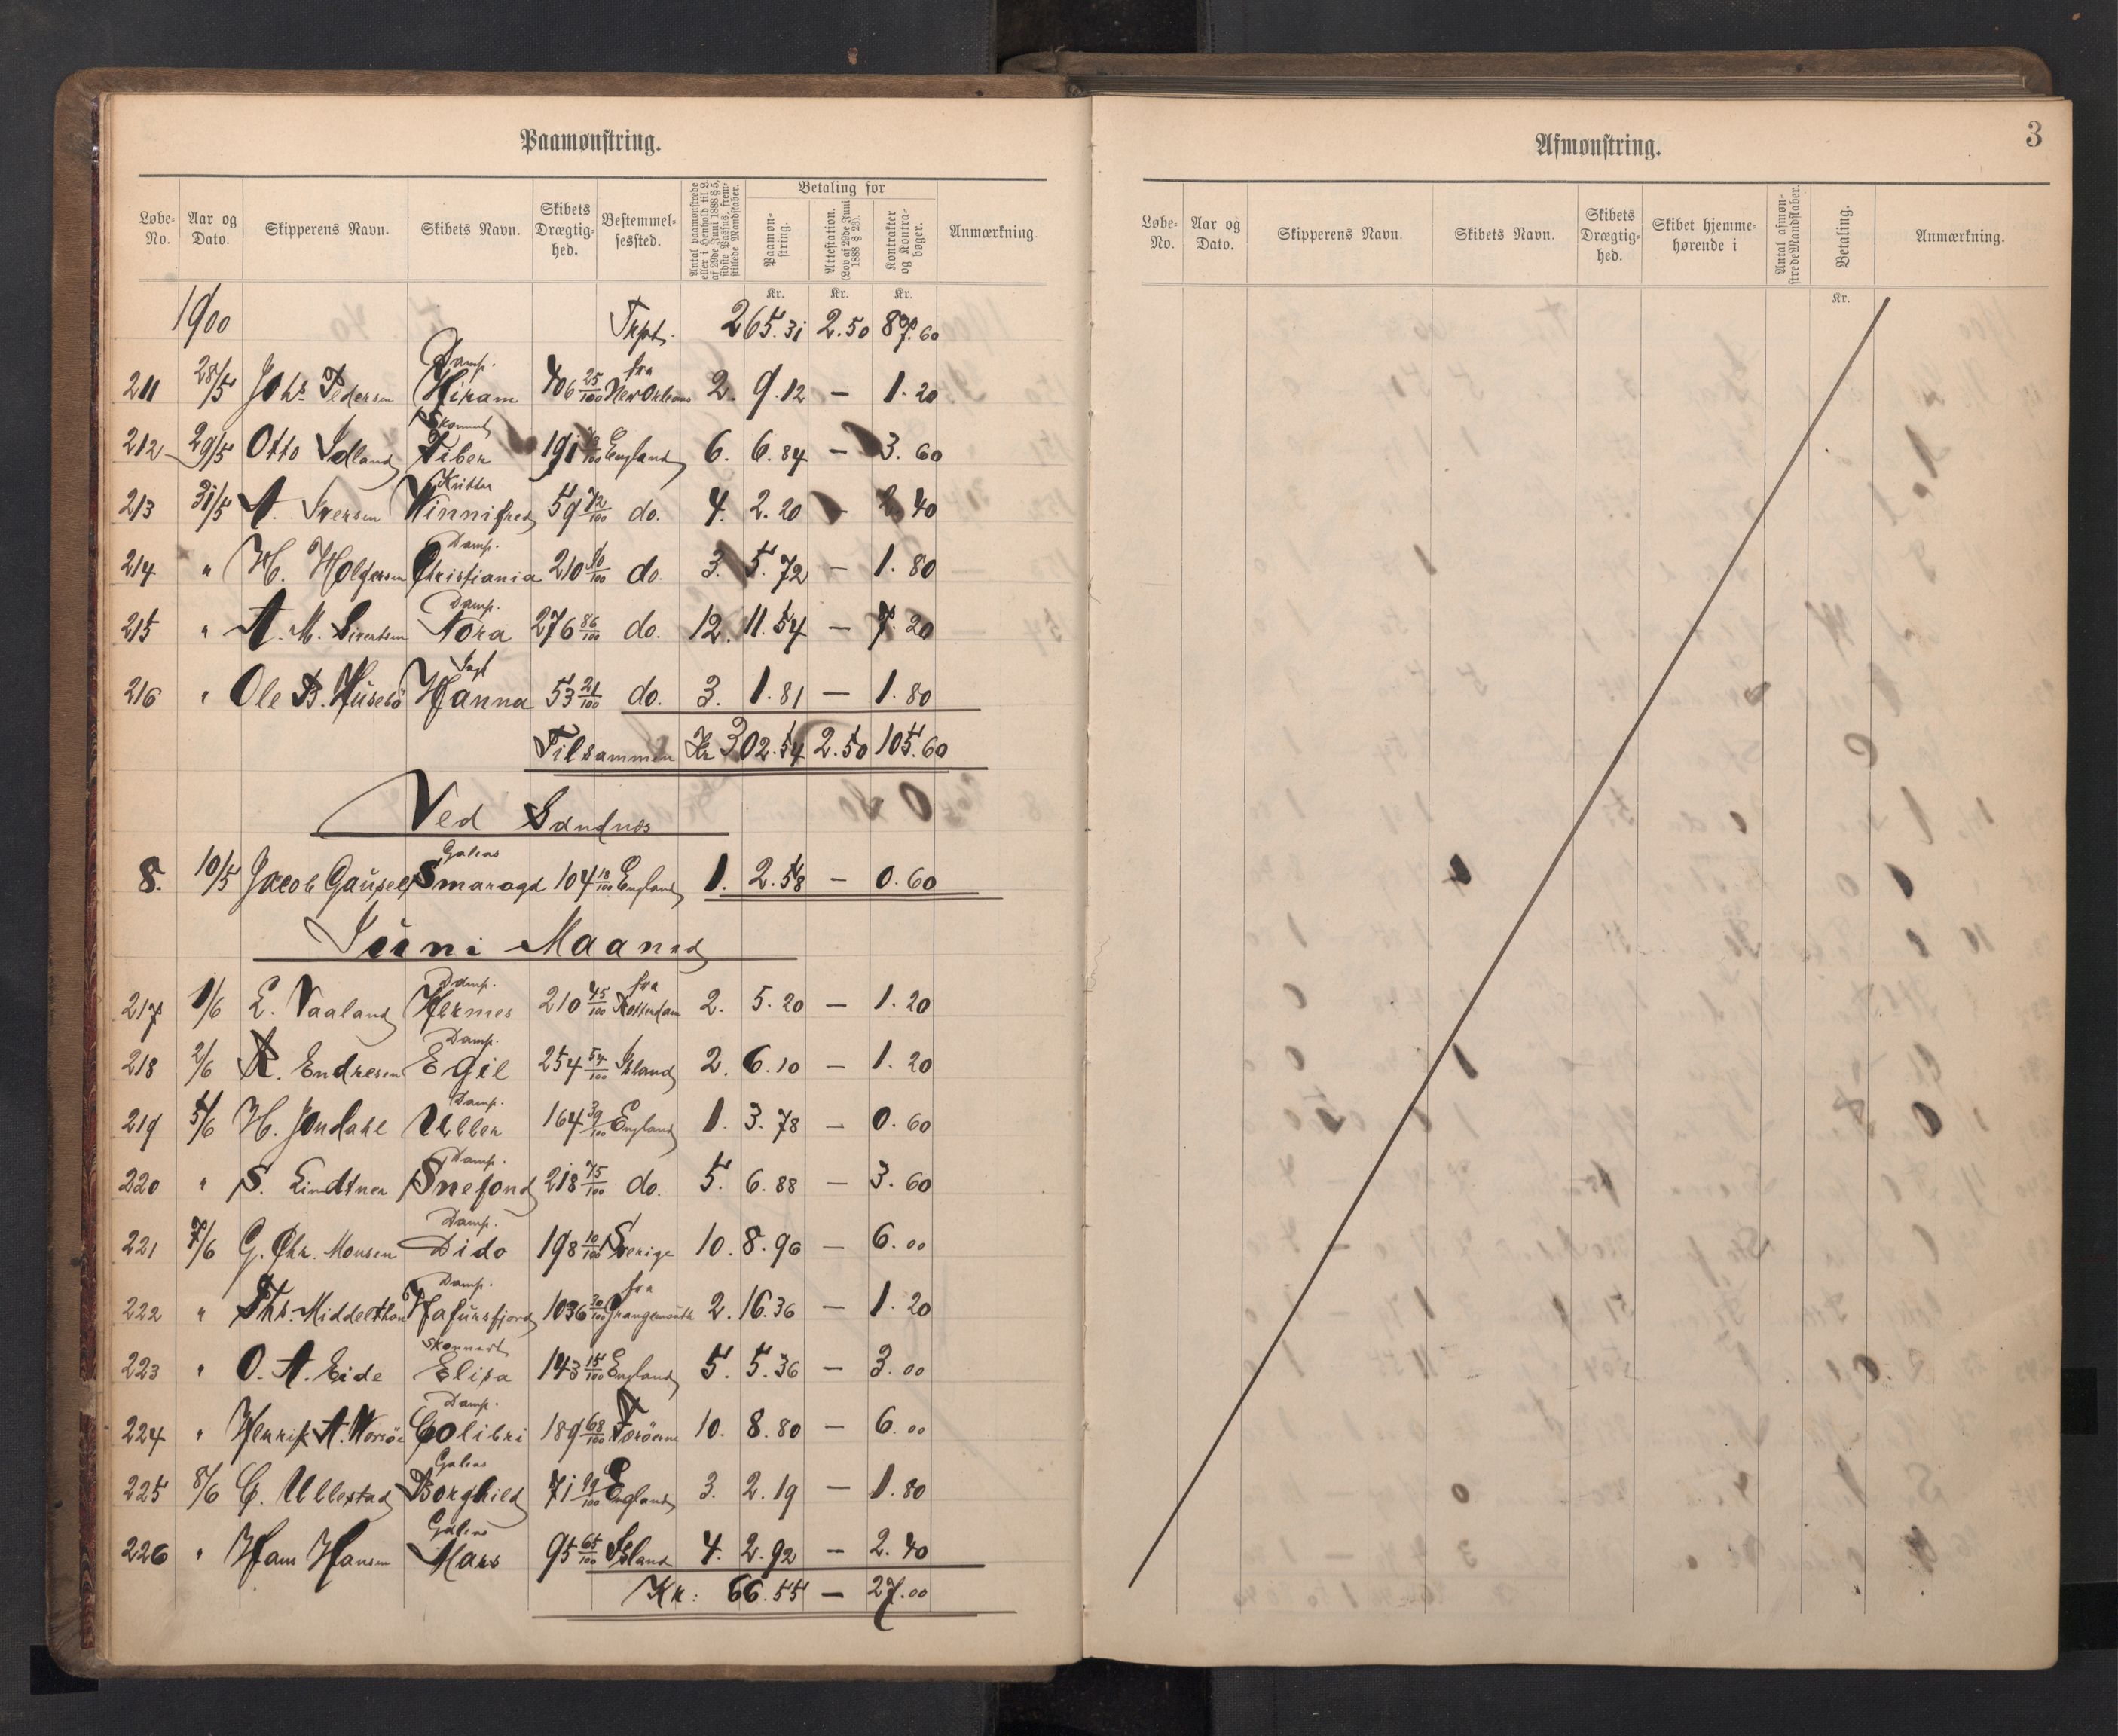 Paamønstring.
Løbe-No. Aar og Dato. Skipperens Navn. Skibets Navn. Skibets Drægtighed. Bestemmelsessted. Antal paamønstrede eller i Henhold til L. af 29de Juni 1888 § 5, sidste Passus, fremstillede Mandskaber. Betaling for Paamønstring. Attestation. (Lov af 29de Juni 1888 § 23). Kontrakter og Kontrabøger. Anmærkning
Kr. Kr. Kr.
1900 Trpt. 265.31 2.50 87.60
211 28/5 Johs Pedersen Damp. Hiram 706 25/100 fra New Orleans 2. 9.12 — 1.20
212 29/5 Otto Idland Skonnert Tiber 191 /100 England 6. 6.84 — 3.60
213 31/5 A. Iversen Kutter Winnifred 59 72/100 do. 4. 2.20 - 2.40
214 " H. Holgersen Damp. Christiania 210 /100 do. 3. 5.72 — 1.80
215 " A. M. Sivertsen Damp. Nora 276 86/100 do. 12. 11.54 — 7.20
216 " Ole B. Husebö Jagt Hanna 53 21/100 do. 3. 1.81 — 1.80
Tilsammen Kr 302.54 2.50 105.60
Ved Sandnæs
8. 10/5 Jacob Gausel Galeas Smaragd 104 18/100 England 1. 2.58 — 0.60
Juni Maaned
217 1/6 E. Vaaland Damp. Hermes 210 45/100 fra Rotterdam 2. 5.20 — 1.20
218 2/6 A. Endresen Damp. Egil 254 54/100 Island 2. 6.10 — 1.20
219 5/6 H. Jondahl Damp. Uller 164 39/100 England 1. 3.78 — 0.60
220 " S. Lindtner Damp. Snefond 218 75/100 do. 5. 6.88 — 3.60
221 7/6 G. Chr. Monsen Damp. Dido 198 10/100 Sverige 10. 8.96 — 6.00
222 " Thr. Middelthon Damp. Hafursfjord 1036 30/100 fra Grangemouth 2. 16.36 — 1.20
223 " O. A. Eide Skonnert Elisa 143 15/100 England 5. 5.36 — 3.00
224 " Henrik A. Worsöe Damp. Colibri 189 68/100 Færöerne 10. 8.80 — 6.00
225 8/6 C. Ullestad Galeas Borghild 71 99/100 England 3. 2.19 — 1.80
226 " Hans Hansen Galeas Mars 95 65/100 Island 4. 2.92 — 2.40
Kr: 66.55 — 27.00
3
Afmønstring.
Løbe-No. Aar og Dato. Skipperens Navn. Skibets Navn. Skibets Drægtighed. Skibet hjemmehørende i Antal afmønstrede Mandskaber. Betaling. Anmærkning.
Kr.